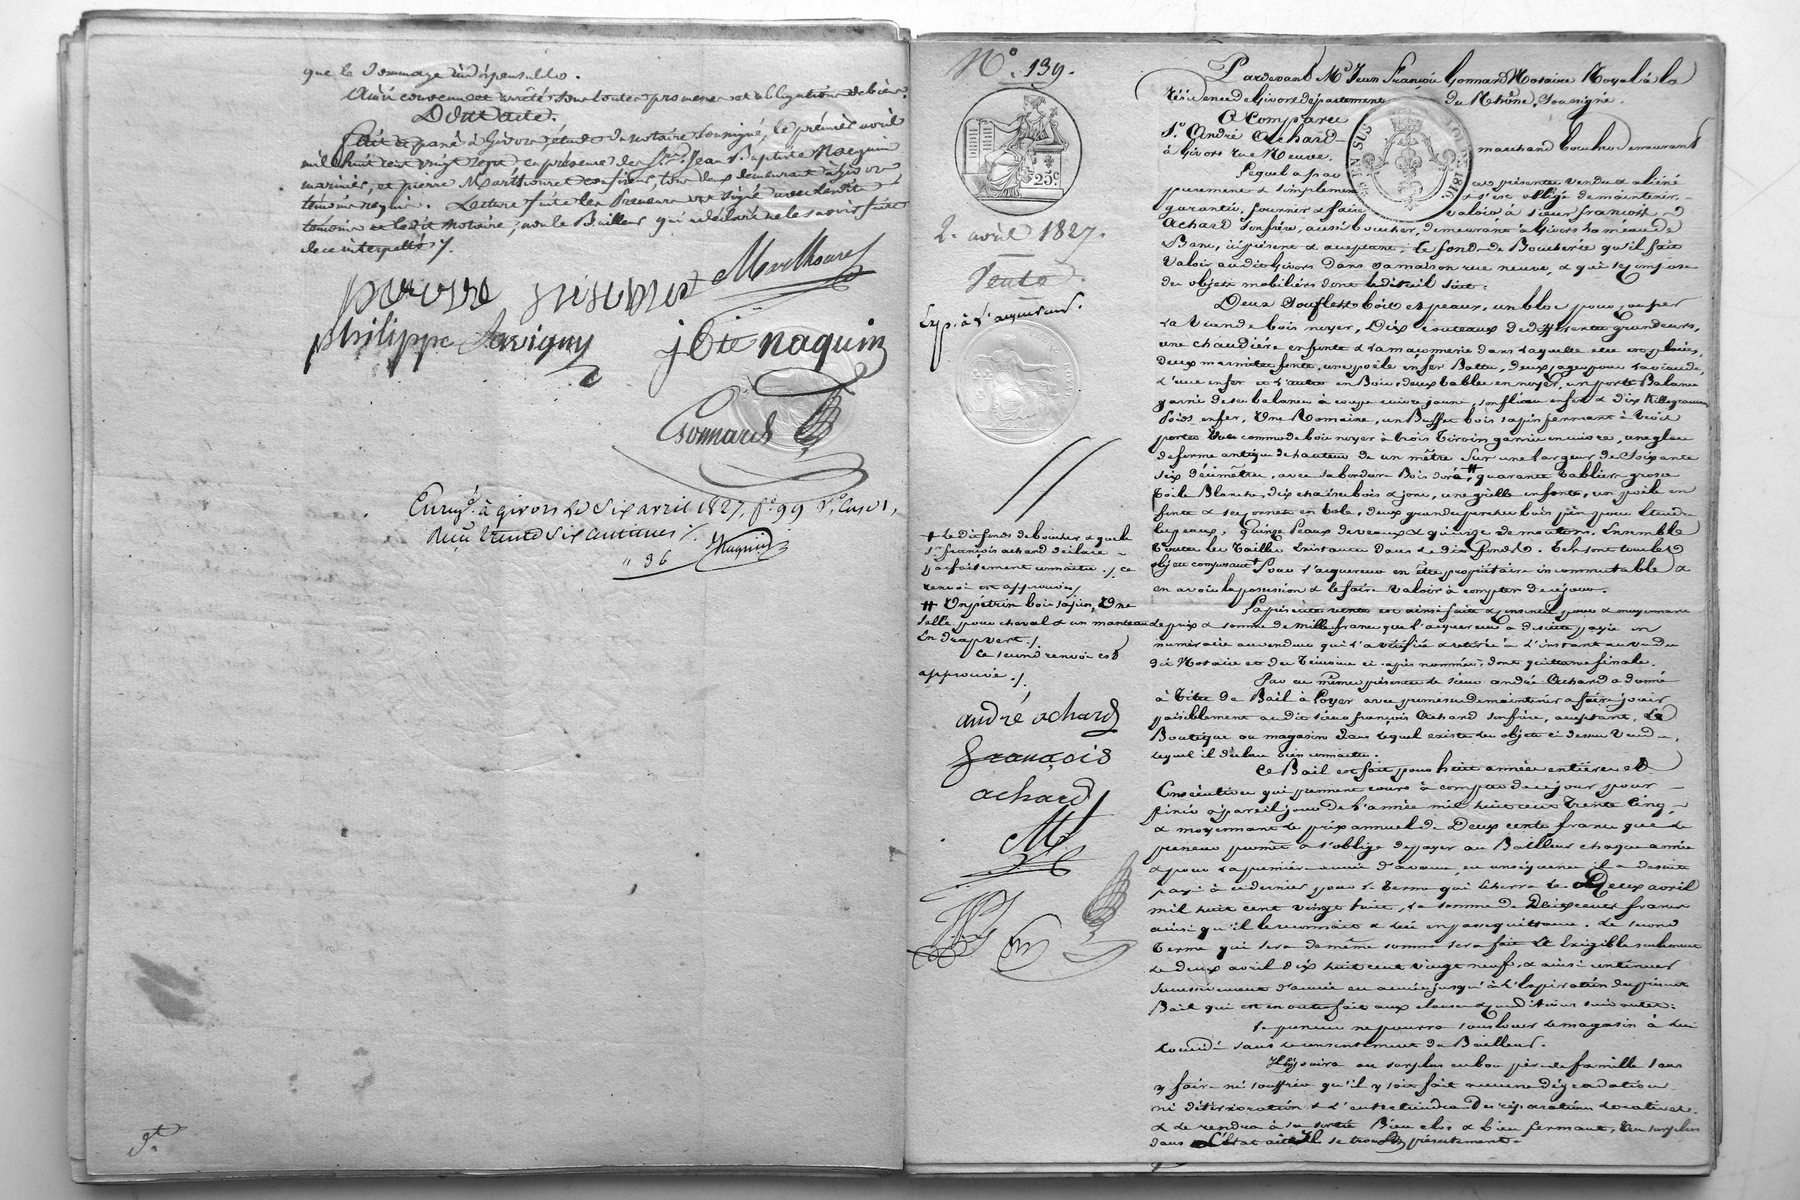 que le dommage indispensable.
Ainsi convenu et arrêté sous toutes promesses et obligations de biens.
Dont acte.
Fait et passé à Givors, étude du notaire soussigné, le premier avril
mil huit cent vingt sept en présence des Srs. Jean Baptiste Naquin
marinier, et pierre Marthouret, tous deux demeurant à Givors
témoins requis. Lecture faite les Preneurs ont signé avec lesdits
témoins et ledit Notaire, non le Bailleur qui a déclaré ne le savoir faire
de ce interpellé /.
Marthouret
philippe
jbte naquin
Gonnard
Enregé. à givors le Six avril 1827, fo. 99 Vo. Case 1,
Reçu trente Six centimes /.
" 36 Naquin
No. 139.
25 c.
2. avril 1827.
Vente
Exp. à l'acquéreur
EN SUS
1816
Pardevant Me. Jean François Gonnard Notaire Royal à la
résidence de Givors département du Rhône, Soussigné.
A Comparu
Sr. André Achard marchand boucher demeurant
à Givors rue Neuve.
Lequel a par ces présentes vendu & aliéné
purement & simplement & s'est obligé de maintenir,
garantir, fournir & faire valoir à sieur françois
Achard Son frère, aussi boucher, demeurant à Givors hameau de
Bans, ici présent & acceptant, le fonds de Boucherie qu'il fait
valoir audit Givors dans Sa maison rue neuve, & qui se compose
des objets mobiliers dont le détail suit:
Deux Soufflets bois et peaux, un bloc pour couper
la viande bois noyer, Dix couteaux de différentes grandeurs,
une chaudière en fonte & la maçonnerie dans laquelle elle est placée,
deux marmites fonte, une poêle en fer Battu, deux cages pour la viande,
l'une en fer et l'autre en Bois, deux tables en noyer, un porte Balance
garni de ses balances à coupe cuivre jaune, son fléau en fer & dix Killogrammes
Poids en fer, Une Romaine, un Buffet bois sapin fermant à trois
portes Une commode bois noyer à trois tiroirs garnie en cuivre, une glace
de forme antique de hauteur de un mètre Sur une largeur de Soixante
Six décimètres, avec sa bordure Bois doré, # quarante tabliers grosse
toile Blanche, dix chaises bois & jonc, une grille en fonte, un poêle en
fonte & ses cornets en tôle, deux grandes perches bois pin pour étendre
les peaux, Quinze Peaux de veaux & quinze de moutons, Ensemble
toutes les Tailles Existantes dans le dit fonds. Tels sont tous les
objets composant Pour l'acquéreur en être propriétaire incommutable &
en avoir la possession & le faire valoir à compter de ce jour.
La présente vente est ainsi faite & consentie pour & moyennant
le prix & somme de mille francs que l'acquéreur a de suite payée en
numéraire au vendeur qui l'a vérifiée & retirée à l'instant au vu du
dit Notaire et des témoins ci-après nommés; dont quittance finale.
Par ces mêmes présentes le sieur andré Achard a donné
à titre de Bail à Loyer avec promesse de maintenir & faire jouir
paisiblement audit sieur françois Achard son frère, acceptant, La
Boutique ou magasin dans lequel existe les objets ci dessus Vendus,
lequel il déclare bien connaitre.
Ce Bail est fait pour huit années entières et
Consécutives qui prennent cours à compter de ce jour pour
finir à pareil jour de l'année mil huit cent trente Cinq,
& moyennant le prix annuel de Deux cents francs que le
preneur promet & s'oblige de payer au Bailleur chaque année
& pour la première année d'avance, en conséquence il a de suite
payé à ce dernier pour le terme qui écherra le Deux avril
mil huit cent vingt huit, la somme de Deux cents francs
ainsi qu'il le reconnait & lui en passe quittance. Le second
terme qui sera de même somme sera fait Et Exigible seulement
le deux avril dix huit cent vingt neuf, & ainsi continuer
Successivement d'année en année jusqu'à l'Expiration du présent
Bail qui est en outre fait aux clauses & conditions suivantes:
Le preneur ne pourra souslouer le magasin à lui
Loué sans le consentement du Bailleur.
Il jouira au surplus en bon père de famille sans
y faire ni souffrir qu'il y soit fait aucune dégradation
ni détérioration & l'entretiendra des réparations locatives.
& le rendra à sa sortie Bien clos & bien fermant, Au surplus
dans L'état où Il se trouve présentement.
# le dit fonds de boucher & que le
Sr. françois achard déclare
parfaitement connaitre ./. ce
renvoi est approuvé/
# Un pétrin bois sapin, Une
Selle pour cheval & un manteau
En drap vert ./.
Ce second renvoi est
approuvé ./.
andré achard
françois
achard